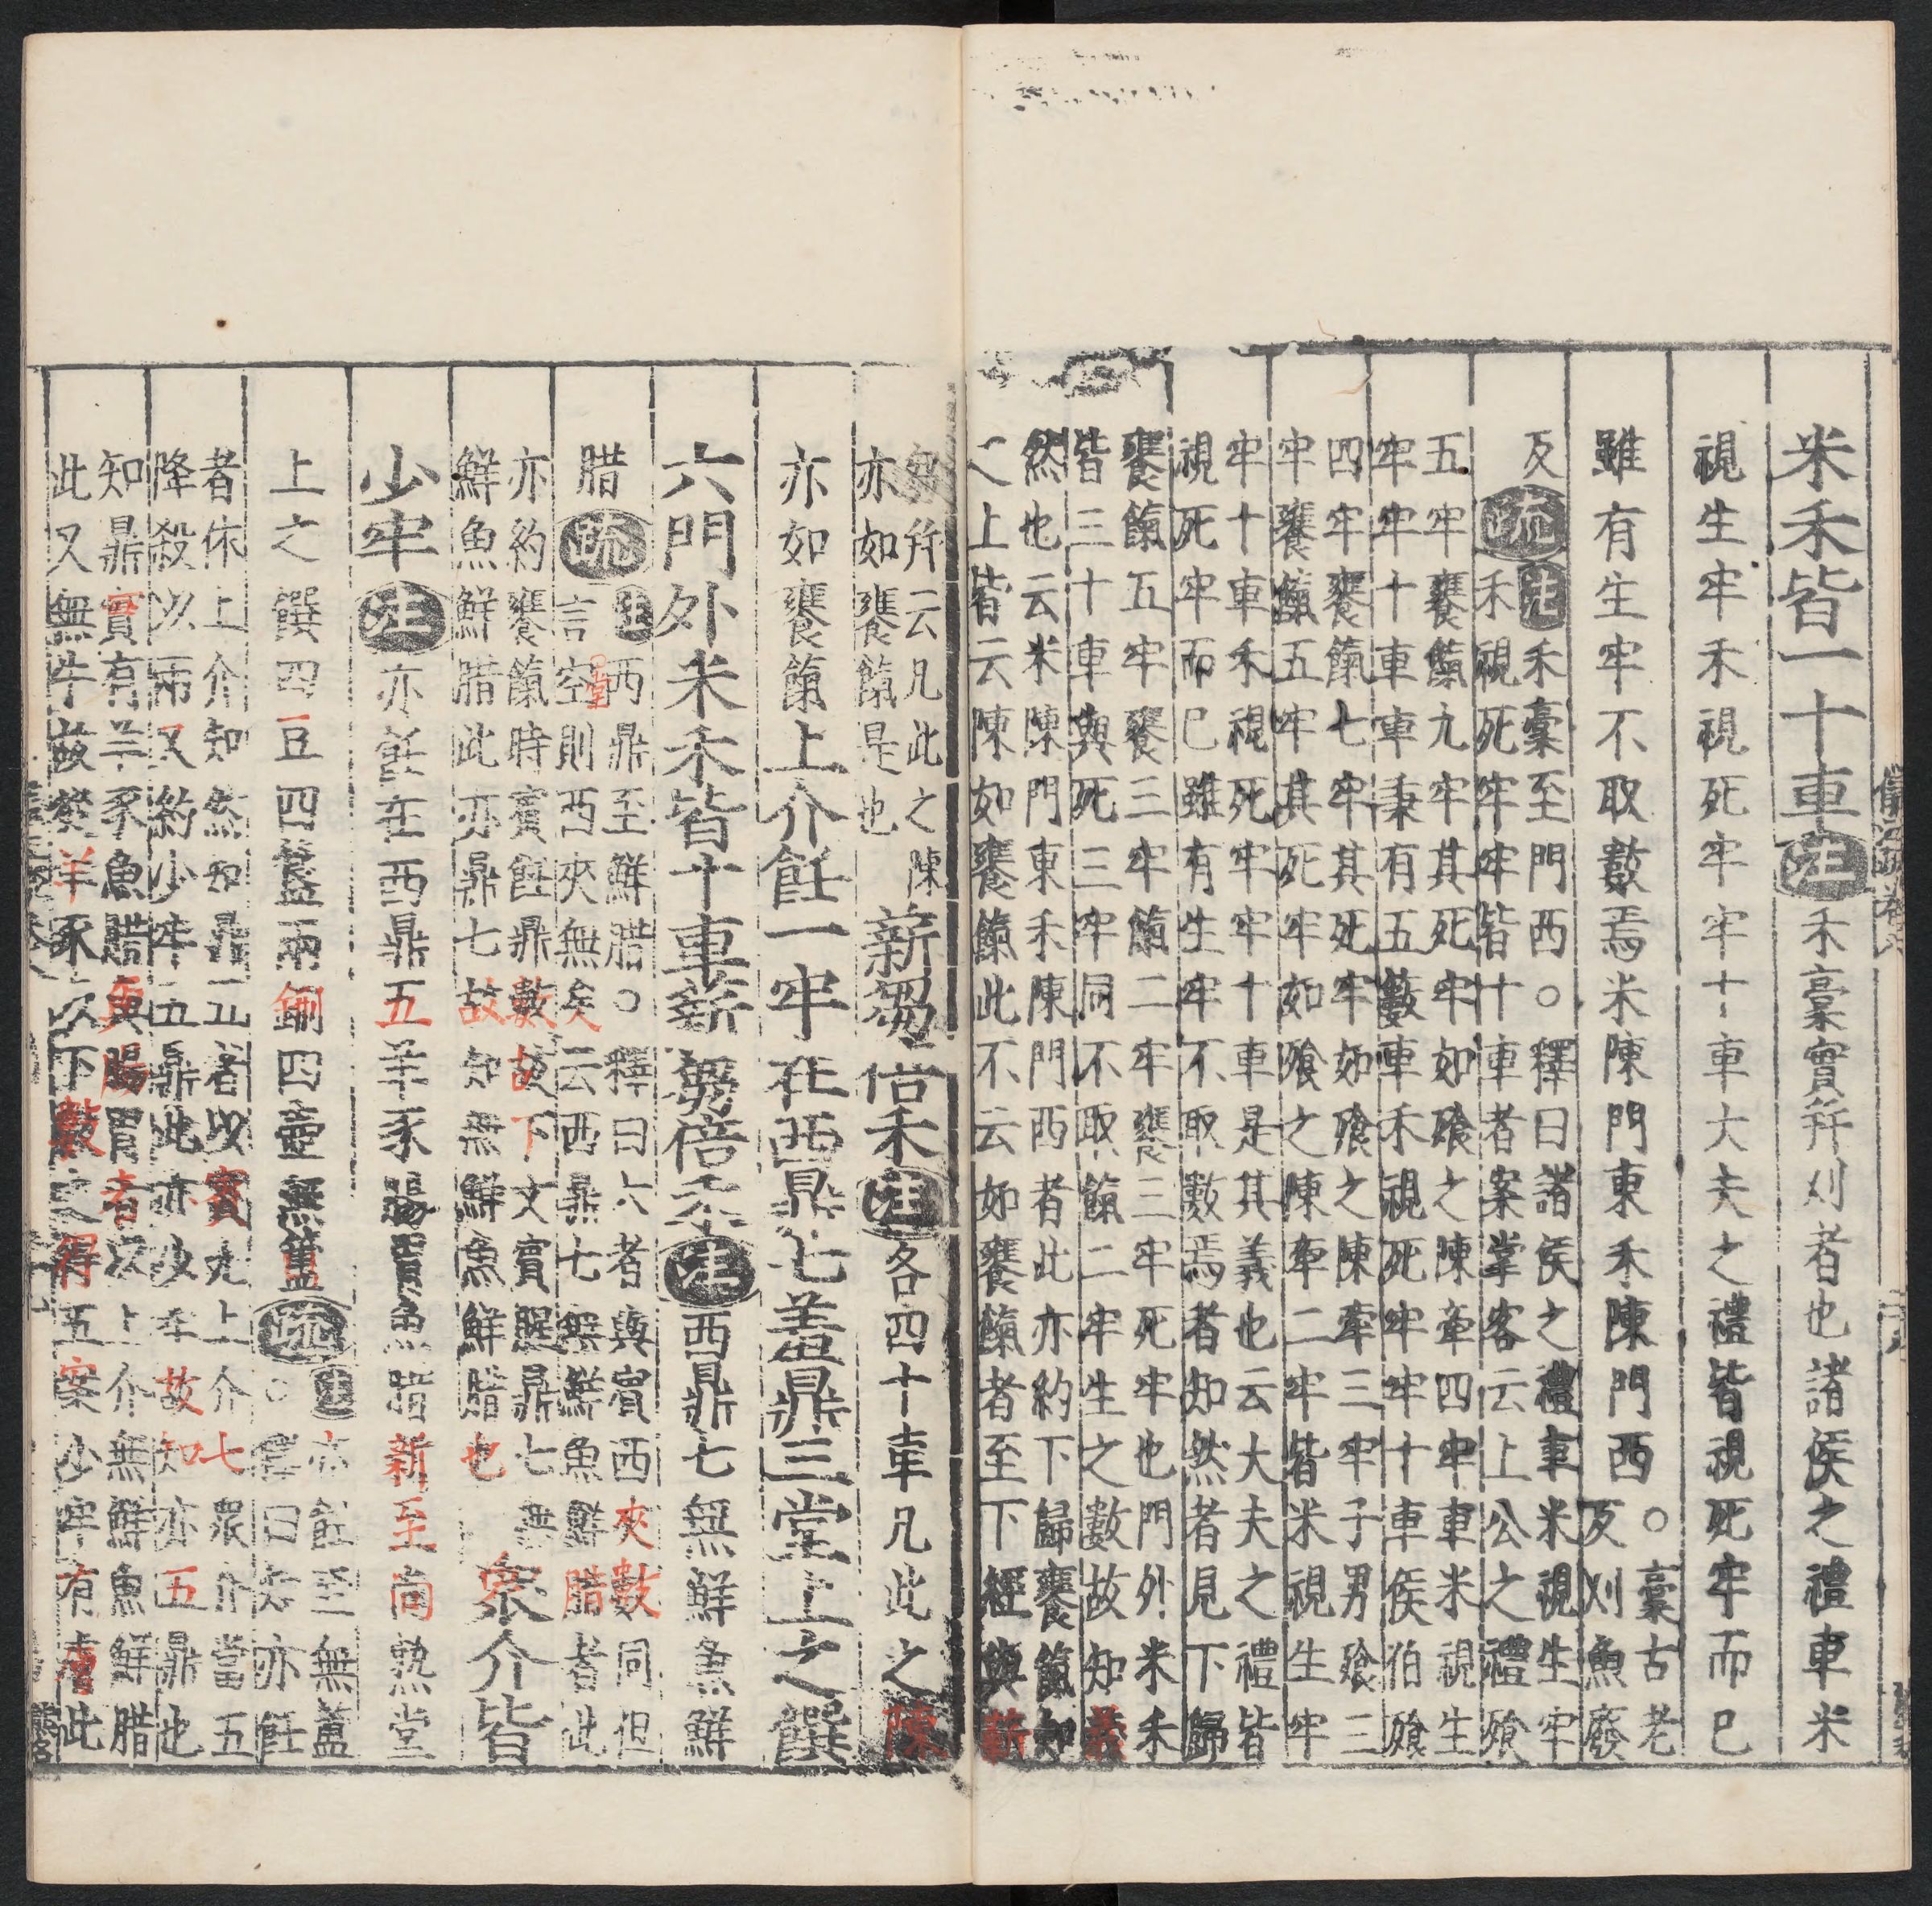 米禾皆二十車注禾稾實并刈者也諸侯之禮車米
視生牢禾視死牢牢十車大夫之禮皆視死牢而已
雖有生牢不取數焉米陳門東禾陳門西○稾古老
反刈魚廢
反疏注禾稾至門西○釋曰諸侯之禮車米視生牢
禾視死牢牢皆十車者案掌客云上公之禮飧
五牢饔餼九牢其死牢如飧之陳牽四牢車米視生
牢牢十車車秉有五籔車禾視死牢牢十車侯伯飧
四牢饔餼七牢其死牢如飧之陳牽三牢子男飧三
牢饔餼五牢其死牢如飧之陳牽二牢皆米視生牢
牢十車禾視死牢牢十車是其義也云大夫之禮皆
視死牢而已雖有生牢不取數焉者知然者見下歸
饔餼五牢饔三牢餼二牢饔三牢死牢也門外米禾
皆三十車與死三牢同不取餼二牢生之數故知義
然也云米陳門東禾陳門西者此亦約下歸饔餼知
之上皆云陳如饔餼此不云如饔餼者至下經與薪
芻并云凡此之陳
亦如饔餼是也薪芻倍禾注各四十車凡此之陳
亦如饔餼上介飪一牢在西鼎七羞鼎三堂上之饌
六門外米禾皆十車薪芻倍禾注西鼎七無鮮魚鮮
腊疏注西鼎至鮮腊○釋曰六者與賓西夾數同但
言堂空則西夾無矣云西鼎七無鮮魚鮮腊者此
亦約饔餼時賓飪鼎數故下文賓腥鼎七無
鮮魚鮮腊此亦鼎七故知無鮮魚鮮腊也衆介皆
少牢注亦飪在西鼎五羊豕腸胃魚腊新至尚熟堂
上之饌四豆四簋兩鉶四壺無簠疏注亦飪至無簠
○釋曰知亦飪
者依上介知然知鼎五者以賓九上介七衆介當五
降殺以兩又約少牢五鼎此亦少牢故知亦五鼎也
知鼎實有羊豕魚腊與腸胃者以上介無鮮魚鮮腊
此又無牛故從羊豕以下數之得五案少牢有膚此